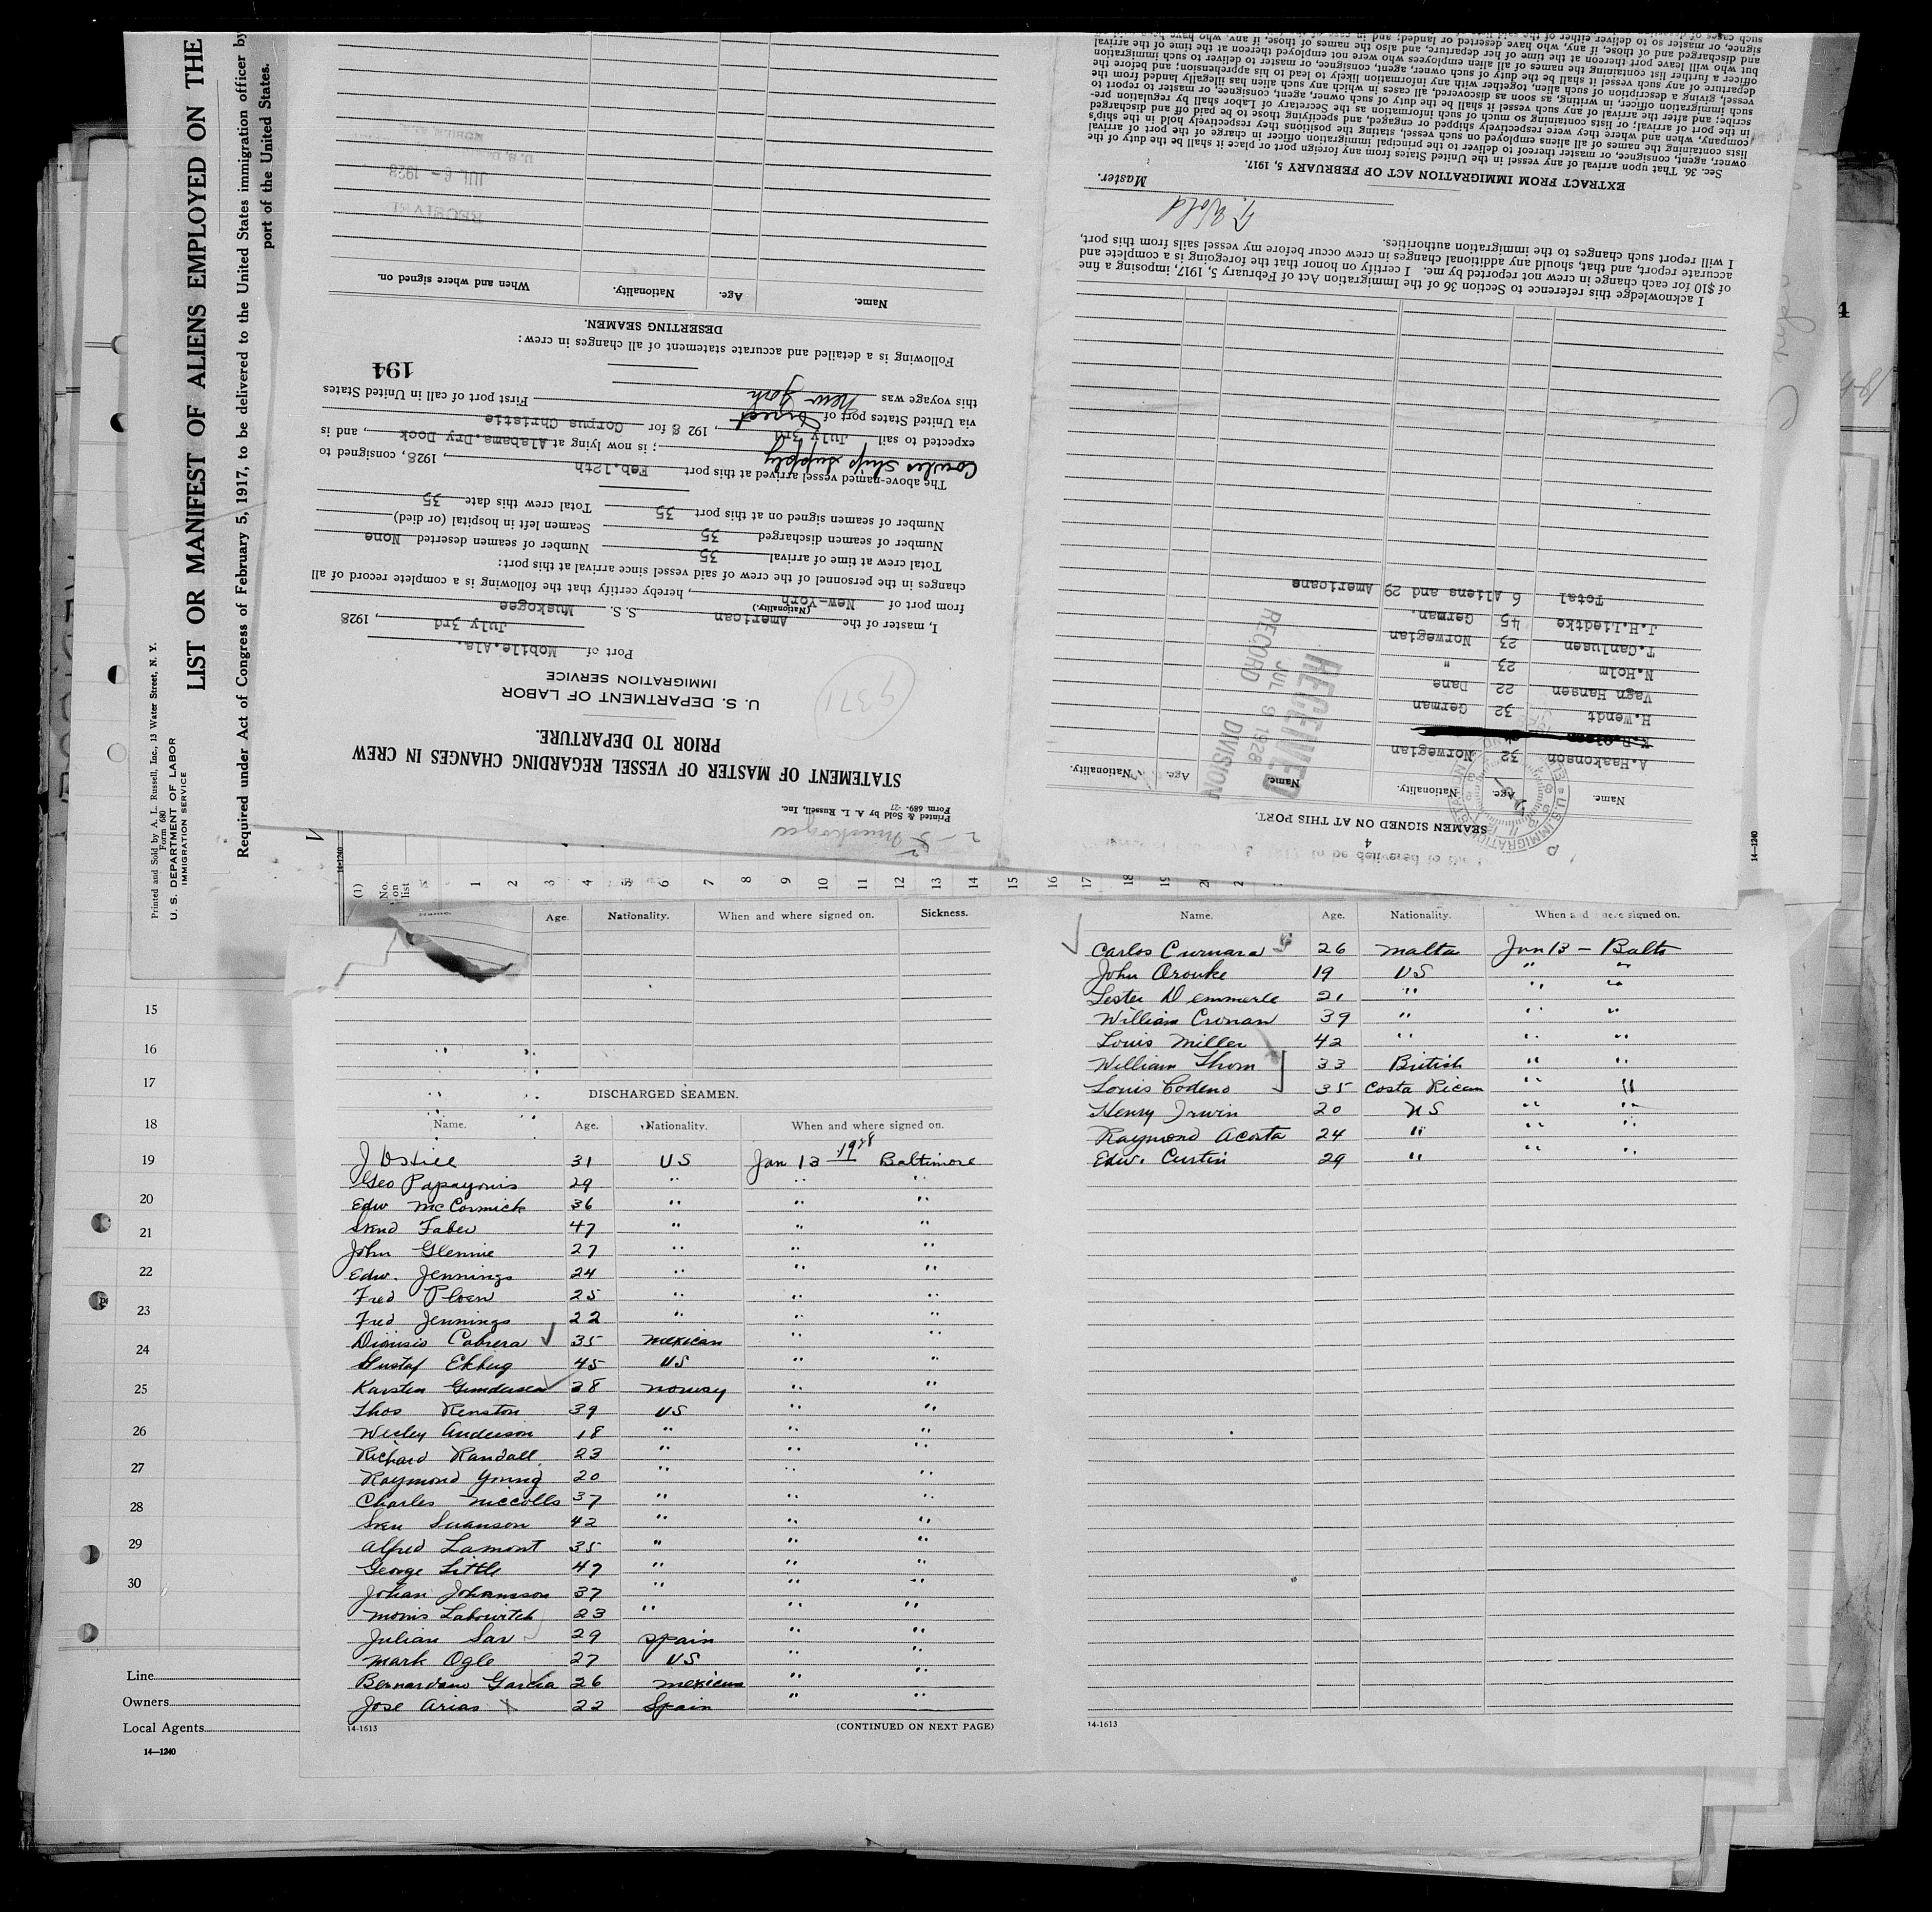 LIST OR MANIFEST OF ALIENS EMPLOYED ON THE
Required under Act of Congress of February 5, 1917, to be delivered to the United States immigration officer by
port of the United States.
Printed and Sold by A. L. Russell, Inc., 13 Water Street, N. Y.
Form 680
U. S. DEPARTMENT OF LABOR
IMMIGRATION SERVICE
Printed & Sold by A. L. Russell, Inc.
Form 689- 27
Muskogee
STATEMENT OF MASTER OF VESSEL REGARDING CHANGES IN CREW
PRIOR TO DEPARTURE.
U. S. DEPARTMENT OF LABOR
IMMIGRATION SERVICE
9371
Port of Mobile.Ala.
July 3rd, 1928
I, master of the American S. S. Muskogee
(Nationality.)
from port of New-York, hereby certify that the following is a complete record of all
changes in the personnel of the crew of said vessel since arrival at this port:
Total crew at time of arrival 35 Number of seamen deserted None
Number of seamen discharged 35 Seamen left in hospital (or died)
Number of seamen signed on at this port 35 Total crew this date 35
The above-named vessel arrived at this port Feb.12th, 1928, consigned to
Cowles Ship Supply; is now lying at Alabama.Dry.Dock, and is
expected to sail July 3rd, 1928 for Corpus Christie
via United States port of Direct
this voyage was New York First port of call in United States
194
Following is a detailed and accurate statement of all changes in crew:
DESERTING SEAMEN.
Name. Age. Nationality. When and where signed on.
RECEIVED
JUL 6 - 1928
MOBILE, ALA.
4
SEAMEN SIGNED ON AT THIS PORT.
Name. Age. Nationality. Name. Age. Nationality.
A.Haakonson 32 Norwegian
H.Wendt 32 German
Vagn Hansen 22 Dane
N.Holm 23 "
T.Canlusen 23 Norwegian
J.H.Liedtke 45 German.
Total 6 Aliens and 29 Americans
RECEIVED
JUL 9 1928
RECORD DIVISION
I acknowledge this reference to Section 36 of the Immigration Act of February 5, 1917, imposing a fine
of $10 for each change in crew not reported by me. I certify on honor that the foregoing is a complete and
accurate report, and that, should any additional changes in crew occur before my vessel sails from this port,
I will report such changes to the immigration authorities.
Master.
EXTRACT FROM IMMIGRATION ACT OF FEBRUARY 5, 1917.
Sec. 36. That upon arrival of any vessel in the United States from any foreign port or place it shall be the duty of the
owner, agent, consignee, or master thereof to deliver to the principal immigration officer in charge of the port of arrival
lists containing the names of all aliens employed on such vessel, stating the positions they respectively hold in the ship's
company, when and where they were respectively shipped or engaged, and specifying those to be paid off and discharged
in the port of arrival; or lists containing so much of such information as the Secretary of Labor shall by regulation pre-
scribe; and after the arrival of any such vessel it shall be the duty of such owner, agent, consignee, or master to report to
such immigration officer, in writing, as soon as discovered, all cases in which any such alien has illegally landed from the
vessel, giving a description of such alien, together with any information likely to lead to his apprehension; and before the
departure of any such vessel it shall be the duty of such owner, agent, consignee, or master to deliver to such immigration
officer a further list containing the names of all alien employees who were not employed thereon at the time of the arrival
but who will leave port thereon at the time of her departure, and also the names of those, if any, who have been paid off
and discharged and of those, if any, who have deserted or landed; and in case of
14-1240
(1)
No. on list
1 2 3 4 5 6 7 8 9 10 11 12 13 14 15 16 17 18 19
Name. Age. Nationality. When and where signed on. Sickness.
DISCHARGED SEAMEN.
Name. Age. Nationality. When and where signed on.
J Ostile 31 US Jan 13 1928 Baltimore
Geo Papayonis 29 " " "
Edw McCormick 36 " " "
Svend Faber 47 " " "
John Glennie 27 " " "
Edw. Jennings 24 " " "
Fred Ploen 25 " " "
Fred Jennings 22 " " "
Dionisio Cabrera 35 mexican " "
Gustaf Ekbug 45 US " "
Karsten Gundersen 28 norway " "
Thos Renston 39 US " "
Wesley Anderson 18 " " "
Richard Randall 23 " " "
Raymond Young 20 " " "
Charles Niccolls 37 " " "
Sven Swanson 42 " " "
Alfred Lamont 35 " " "
George Little 47 " " "
Johan Johansson 37 " " "
Morris Labowitch 23 " " "
Julian Sar 29 Spain " "
Mark Ogle 27 US " "
Bernardano Garcia 26 mexican " "
Jose Arias 22 Spain " "
14-1613
(CONTINUED ON NEXT PAGE)
Name. Age. Nationality. When and where signed on.
Carlos Curmara 26 Malta Jan 13 - Balto
John Orouke 19 US " "
Lester Demmerle 21 " " "
William Cronan 39 " " "
Louis Miller 42 " " "
William Thom 33 British " "
Louis Codeno 35 Costa Rican " "
Henry Irwin 20 US " "
Raymond Acosta 24 " " "
Edw. Curtin 29 " " "
14-1613
15
16
17
18
19
20
21
22
23
24
25
26
27
28
29
30
Line
Owners
Local Agents
14—1240
14-1240
4